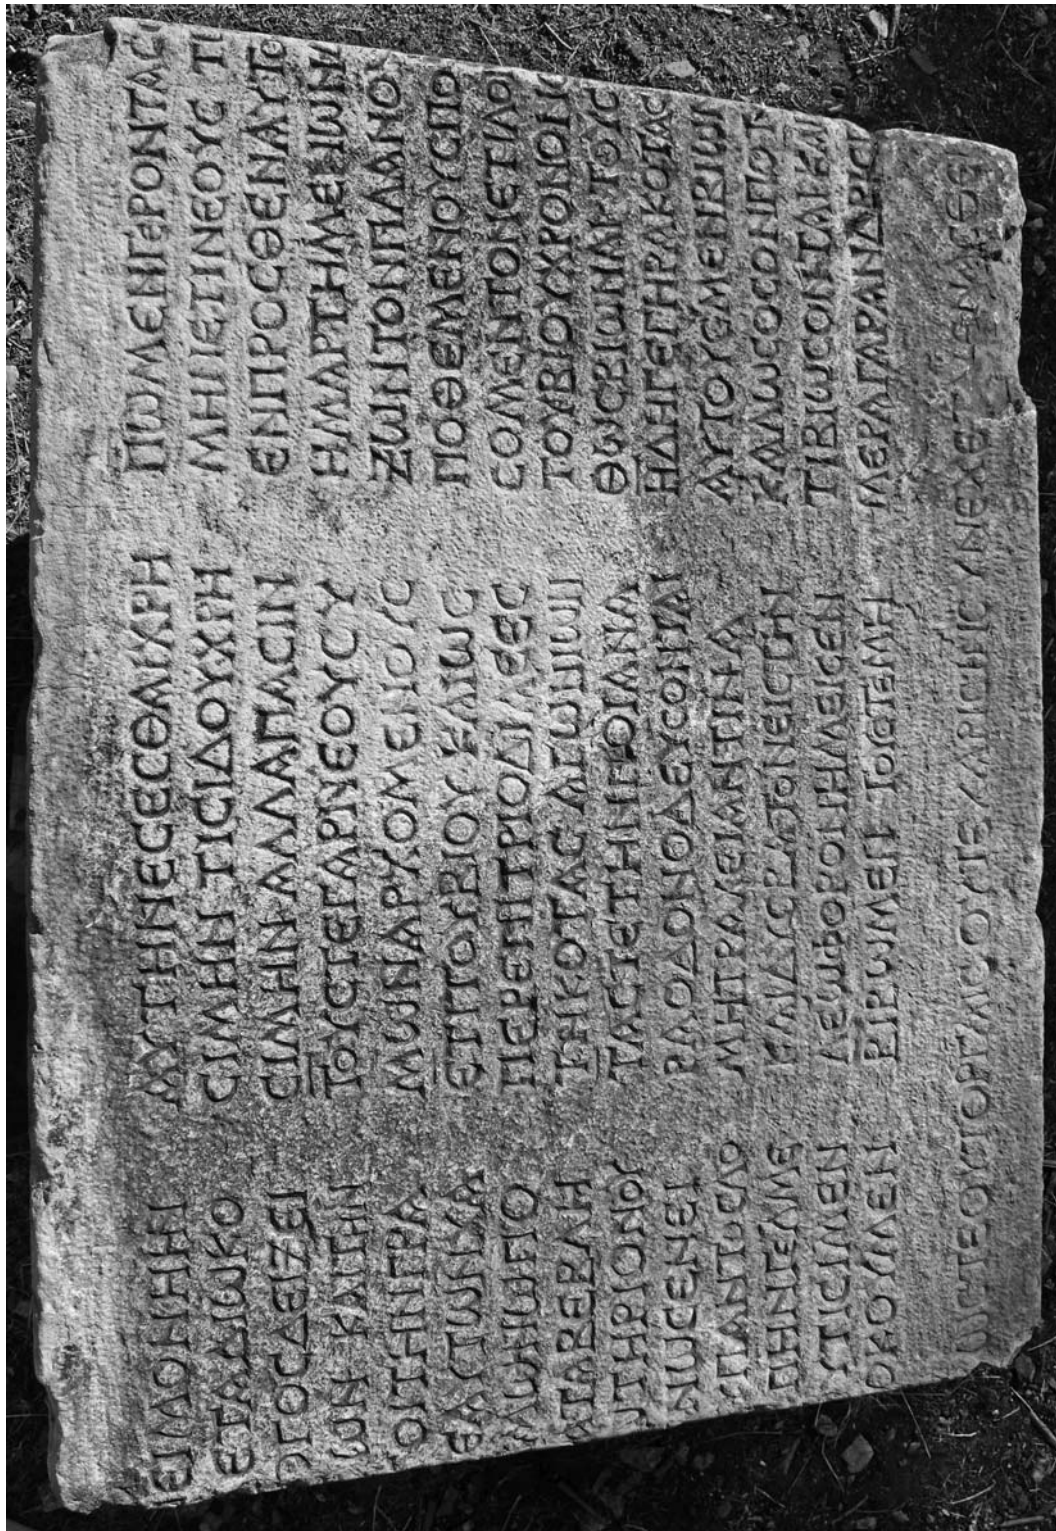 ΕΙΔΟΝΗΗΙ
ΕΤΑΔΙΩΚΟ
ΟΓΟϹΔΕΙΞΕΙ
ΩΝ ΚΑΙΤΗΝ
ΟΙΤΗΝΓΡΑ
ΕΑϹΤΩΝΜΑ
ΑΤΑΒΕΒΛΗ
ΥΤΗΡΙΟΝΟΥ
ΑΙΩϹΕΝΕΙ
ΠΑΝΤΩϹΔΟ
ΠΗΝΓΕΜΕ
ϹΤΙϹΙΜΕΝ
ΟΚΟΥΜΕΝ
ΑΥΤΗΝΕϹΕϹΘΑΙΧΡΗ
ϹΙΜΗΝ ΤΙϹΙΔΟΥΧΡΗ
ϹΙΜΗΝ ΑΛΛΑΠΑϹΙΝ
ΤΟΥϹΤΕΓΑΡΝΕΟΥϹΥ
ΜΩΝΑΡΧΟΜΕΝΟΥϹ
ΕΤΙΤΟΥΒΙΟΥΚΑΙΩϹ
ΠΕΡΕΠΙΤΡΙΟΔΙΑϹΕϹ
ΤΗΚΟΤΑϹΑΓΩΝΙΩΝ
ΤΑϹΤΕΤΗΝΠΡΟΙΑΝΑΙ
ΡΑΟΔΟΝΟΔΕΥϹΟΝΤΑΙ
ΜΗΤΡΑΠΕΙΑΝΤΙΝΑ
ΚΑΙΔΥϹΒΑΤΟΝΕΙϹΤΗΝ
ΛΕΩΦΟΡΟΝΗΜΕΙϹΕΝ
ΒΙΒΩΜΕΝ ΤΟΤΕΜΗ
ΠΩΜΕΝΓΕΡΟΝΤΑϹΟ
ΜΗΙΕΤΙΝΕΟΥϹ ΤΙ
ΕΝΠΡΟϹΘΕΝΑΥΤΟ
ΗΜΑΡΤΗΜΕΝΩΝΑ
ΖΩΝΤΟΝΠΛΑΝΟ
ΠΟΘΕΜΕΝΟΥϹΠΟ
ϹΟΜΕΝΤΟΝΕΤΙΛΟ
ΤΟΥΒΙΟΥΧΡΟΝΟΝΟ
ΘΩϹΒΙΩΝΑΙΤΟΥϹ
ΗΔΗΓΕΓΗΡΑΚΟΤΑϹ
ΑΥΤΟΥϹΜΕΝΒΙΩΝ
ΚΑΛΩϹΟϹΟΝΠΟΤ
ΤΙΒΙΩϹΟΝΤΑΙΚΑΙ
ΜΕΡΑΓΑΡΑΝΔΡΙϹΙ
ΩϹΤΕΟΥΤΟΡΓΑΙϹΟΥΤΕΧΑΡΙϹΙΝϹΥΝΕΧΕΤΑΙΕΝΑϹΘΕ